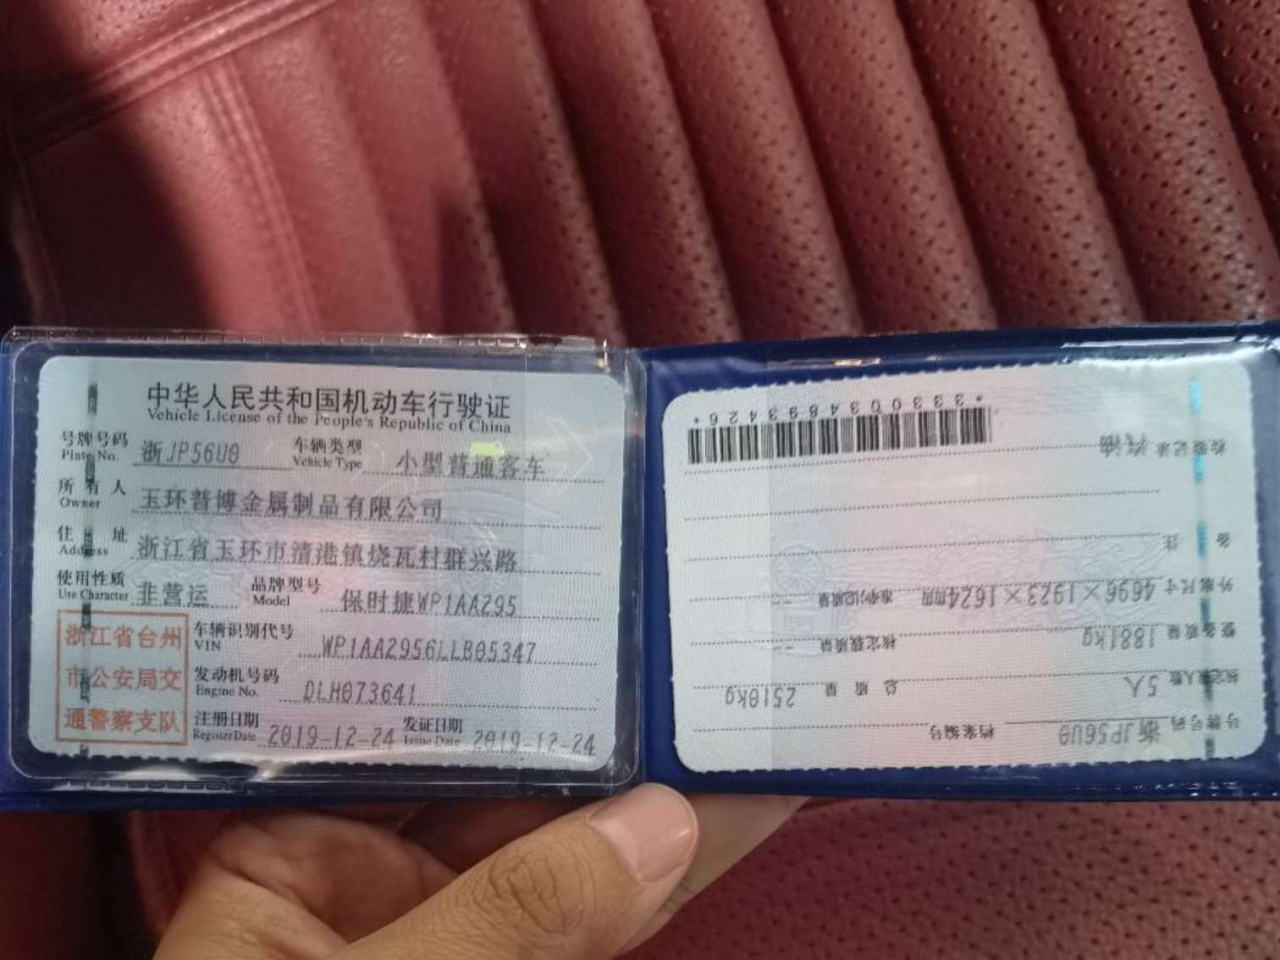 中华人民共和国机动车行驶证
Vehicle License of the People's Republic of China
号牌号码 浙JP56U0 车辆类型 小型普通客车
Plate No. Vehicle Type
所有人 玉环普博金属制品有限公司
Owner
住址 浙江省玉环市清港镇烧瓦村群兴路
Address
使用性质 非营运 品牌型号 保时捷WP1AA295
Use Character Model
浙江省台州
市公安局交
通警察支队
车辆识别代号 WP1AA2956LLB05347
VIN
发动机号码 DLH073641
Engine No.
注册日期 2019-12-24 发证日期 2019-12-24
Register Date Issue Date
号牌号码 浙JP56U0 档案编号
核定载人数 5人 总质量 2510kg
整备质量 1881kg 核定载质量 --
外廓尺寸 4696×1923×1624mm 准牵引总质量 --
备注
检验记录 汽油
*3330034893426*